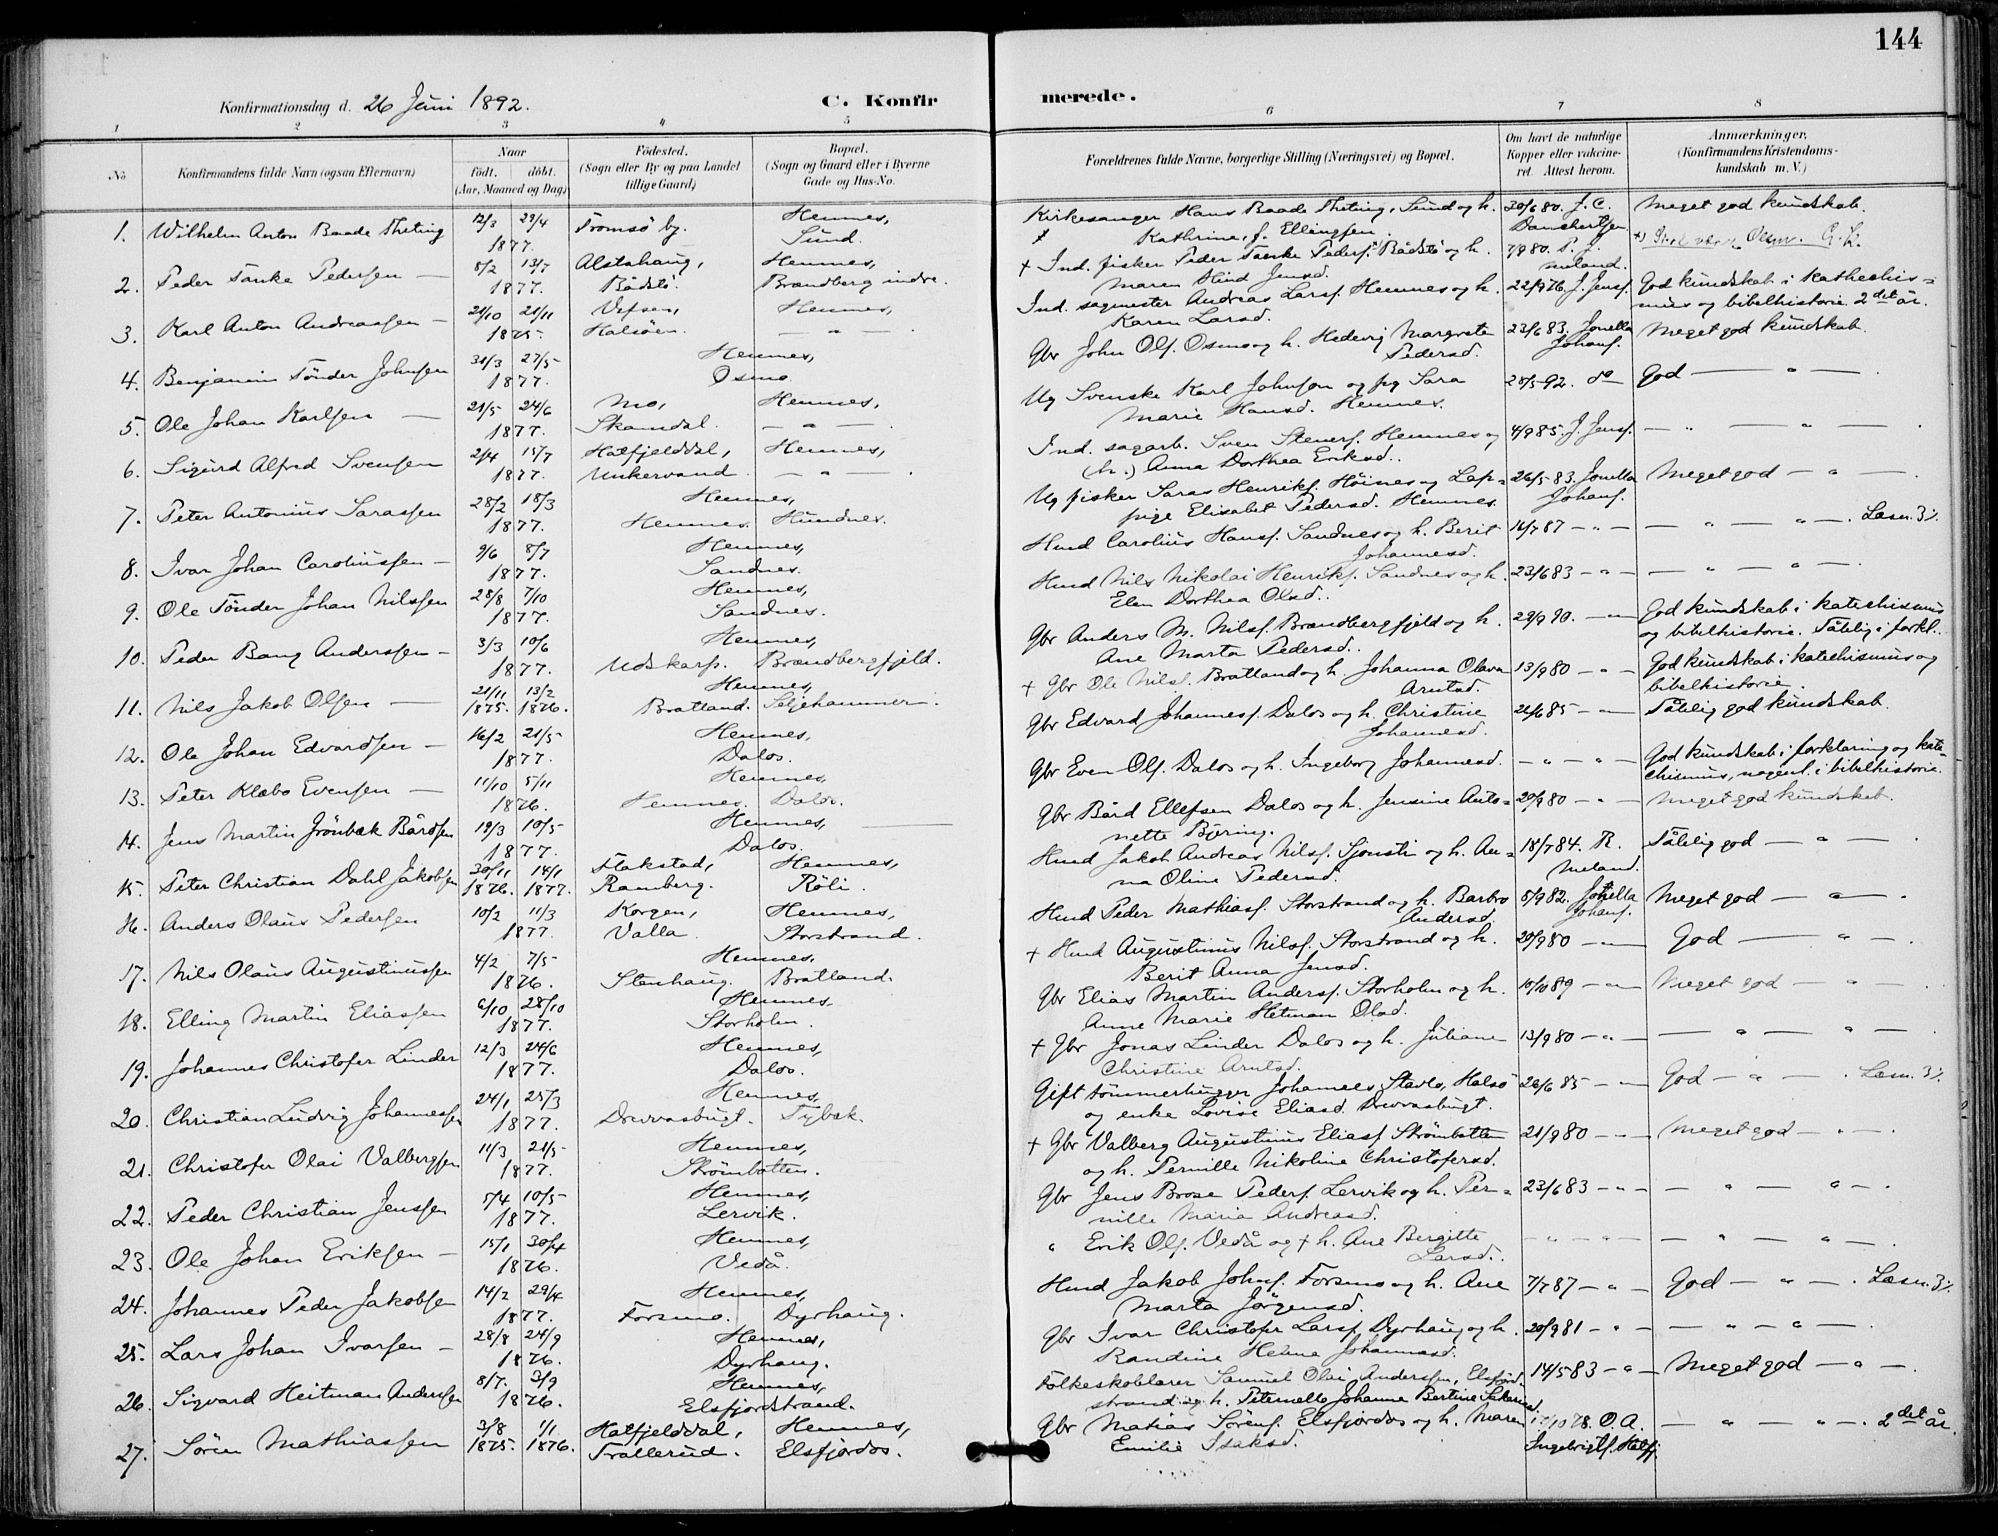 144
Konfirmationsdag d. 26 Juni 1892.
C. Konfirmerede.
1 2 3 4 5 6 7 8
No
Konfirmandens fulde Navn (ogsaa Efternavn)
Naar
født. døbt.
(Aar, Maaned og Dag)
Fødested.
(Sogn eller By og paa Landet
tillige Gaard)
Bopæl.
(Sogn og Gaard eller i Byerne
Gade og Hus-No.
Forældrenes fulde Navne, borgerlige Stilling (Næringsvei) og Bopæl.
Om havt de naturlige
Kopper eller vakcine-
ret. Attest herom.
Anmærkninger.
(Konfirmandens Kristendoms-
kundskab m. V.)
1. Wilhelm Anton Baade Theting 12/3 29/4 1877. Tromsö by. Hemnes, Sund.
Kirkesanger Hans Baade Theting, Sund og h. 30/6 80. J. C.
Kathrine, f. Ellingsen.
Meget god kundskab.
2. Peder Tanke Pedersen — 8/2 13/7 1877. Alstahaug, Bådstö. Hemnes, Brændberg indre.
+ Ind. fisker Peder Tanke Peders. Bådstö og h.
Maren Hind Jensd.
3. Karl Anton Andreassen — 21/10 21/11 1875. Vefsen, Halsöen. Hemnes, — " —
Ind. sagmester Andreas Larss. Hemnes og h. J. Jens.
Karen Larsd.
God kundskab i kathechis=
mus og bibelhistorie. 2det år.
4. Benjamin Tönder Johnsen 31/3 27/5 1877. Hemnes, Osmo.
Gbr John Ols. Osmo og h. Hedevig Margrete
Pedersd. 23/6 83. Jonella
Johans.
Meget god kundskab.
5. Ole Johan Karlsen — 21/5 24/6 1877. Mo, Skamdal. Hemnes, — " —
Ug Svenske Karl Johnson og pg Sara
Marie Hansd. Hemnes. 28/5 92. do
God — " —
6. Sigurd Alfred Svensen 2/4 15/7 1877. Hatfjelddal, Unkervand. Hemnes, — " —
Ind. sagarb. Sven Steners. Hemnes og
(h.) Anna Dorthea Eriksd. 4/9 85. J. Jens.
— " — " —
7. Peter Antonius Sarassen 28/2 18/3 1877. Hemnes, Hemnes. Hundnes.
Ug fisker Saras Henriks. Höines og Lap=
pige Elisabet Pedersd. Hemnes. 26/5 83. Jonella
Johans.
Meget god — " —
8. Ivar Johan Caroliussen — 9/6 8/7 1877. Hemnes, Sandnes.
Hmd Carolius Hanss. Sandnes og h. Berit
Johannesd. 16/7 87 — " —
— " — " — Læsn. 3%
9. Ole Tönder Johan Nilssen 28/8 7/10 1877. Hemnes, Sandnes.
Hmd Nils Nikolai Henriks. Sandnes og h.
Elen Dorthea Olsd. 23/6 83 — " —
— " — " —
10. Peder Bang Anderssen — 3/3 10/6 1877. Hemnes, Udskarp. Brændbergfjeld.
Gbr Anders M. Nilss. Brændbergfjeld og h.
Ane Marta Pedersd. 29/9 90. — " —
God kundskab i katechismus
og bibelhistorie. Tålelig i forkl.
11. Nils Jakob Olsen — 21/11 13/2 1875. 1876. Hemnes, Bratland. Seljehammer.
+ Gbr Ole Nilss. Bratland og h. Johanna Olava
Arntsd. 13/9 80 — " —
God kundskab i katechismus og
bibelhistorie.
12. Ole Johan Edvardsen — 16/2 21/5 1877. Hemnes, Dalos.
Gbr Edvard Johanness. Dalos og h. Christine
Johannesd. 26/6 85 — " —
Tålelig god kundskab.
13. Peter Klæbo Evensen — 11/10 5/11 1876. Hemnes, Hemnes. Dalos.
Gbr Even Ols. Dalos og h. Ingeborg Johannesd. — " — " —
God kundskab i forklaring og kate=
chismus, nogenl. i bibelhistorie.
14. Jens Martin Grönbæk Bårdsen 19/3 10/5 1877. Hemnes, Dalos.
Gbr Bård Ellefsen Dalos og h. Jensine Anto=
nette Bjering. 20/9 80 — " —
Meget god kundskab.
15. Peter Christian Dahl Jakobsen 30/11 14/1 1876. 1877. Flakstad, Ramberg. Hemnes, Röli.
Hmd Jakob Andreas Nilss. Sjonsti og h. An=
na Oline Pedersd. 18/7 84. R.
Meland.
Tålelig god — " —
16. Anders Olaus Pedersen 10/2 11/3 1877. Korgen, Valla. Hemnes, Storstrand.
Hmd Peder Mathiass. Storstrand og h. Barbro
Andersd. 5/9 82. Jonella
Johans.
Meget god — " —
17. Nils Olaus Augustinussen 4/2 7/5 1876. Hemnes, Stenhaug. Bratland.
+ Hmd Augustinus Nilss. Storstrand og h.
Berit Anna Jensd. 20/9 80 — " —
God — " —
18. Elling Martin Eliassen 6/10 28/10 1877. Hemnes, Storholm.
Gbr Elias Martin Anders. Storholm og h.
Anne Marie Hetman Olsd. 10/10 89 — " —
Meget god — " —
19. Johannes Christofer Linder 12/3 24/6 1877. Hemnes, Dalos.
+ Gbr Jonas Linder Dalos og h. Juliane
Christine Arntsd. 13/9 80 — " —
— " — " —
20. Christian Ludvig Johannessen 24/1 25/3 1877. Hemnes, Drevvasbugt. Tybæk.
Gift tömmerhugger Johannes Stavlo, Halsö
og enke Lovise Eliasd. Drevvasbugt. 26/6 85 — " —
God — " — Læsn. 3%
21. Christofer Olai Valbergsen 11/3 21/5 1877. Hemnes, Strömbotten.
+ Gbr Valberg Augustinus Elias. Strömbotten
og h. Pernille Nikoline Christofersd. 21/9 80 — " —
Meget god — " —
22. Peder Christian Jenssen 5/4 10/5 1877. Hemnes, Lervik.
Gbr Jens Brose Peders. Lervik og h. Per=
nille Maria Andreasd. 23/6 83 — " —
— " — " —
23. Ole Johan Eriksen — 15/1 30/4 1876. Hemnes, Vedå.
" Erik Ols. Vedå og + h. Ane Bergitte
Larsd. — " — " —
— " — " —
24. Johannes Peder Jakobsen 14/2 29/4 1877. Hemnes, Forsmo. Dyrhaug.
Hmd Jakob Johns. Forsmo og h. Ane
Marta Jörgensd. 7/7 87 — " —
God — " — Læsn. 3%
25. Lars Johan Ivarsen — 28/8 24/9 1876. Hemnes, Dyrhaug.
Gbr Ivar Christofer Larss. Dyrhaug og h.
Randine Helene Johannesd. 20/9 81 — " —
— " — " —
26. Sigvard Heitman Anderssen 8/7. 3/9 1876. Hemnes, Elsfjordstrand.
Folkeskolelærer Samuel Olai Anderssen, Elsfjord=
strand og h. Peternelle Johanne Bertine Sakariasd. 14/5 83 — " —
Meget god — " —
27. Sören Mathiassen 3/8 1/1 1875. 1876. Hatfjelddal, Trallerud. Hemnes, Elsfjordos.
Gbr Matias Sörens. Elsfjordos og h. Maren
Emilie Isaksd. O. A.
Ingebrigts. Hatfj.
— " — " — 2det år.